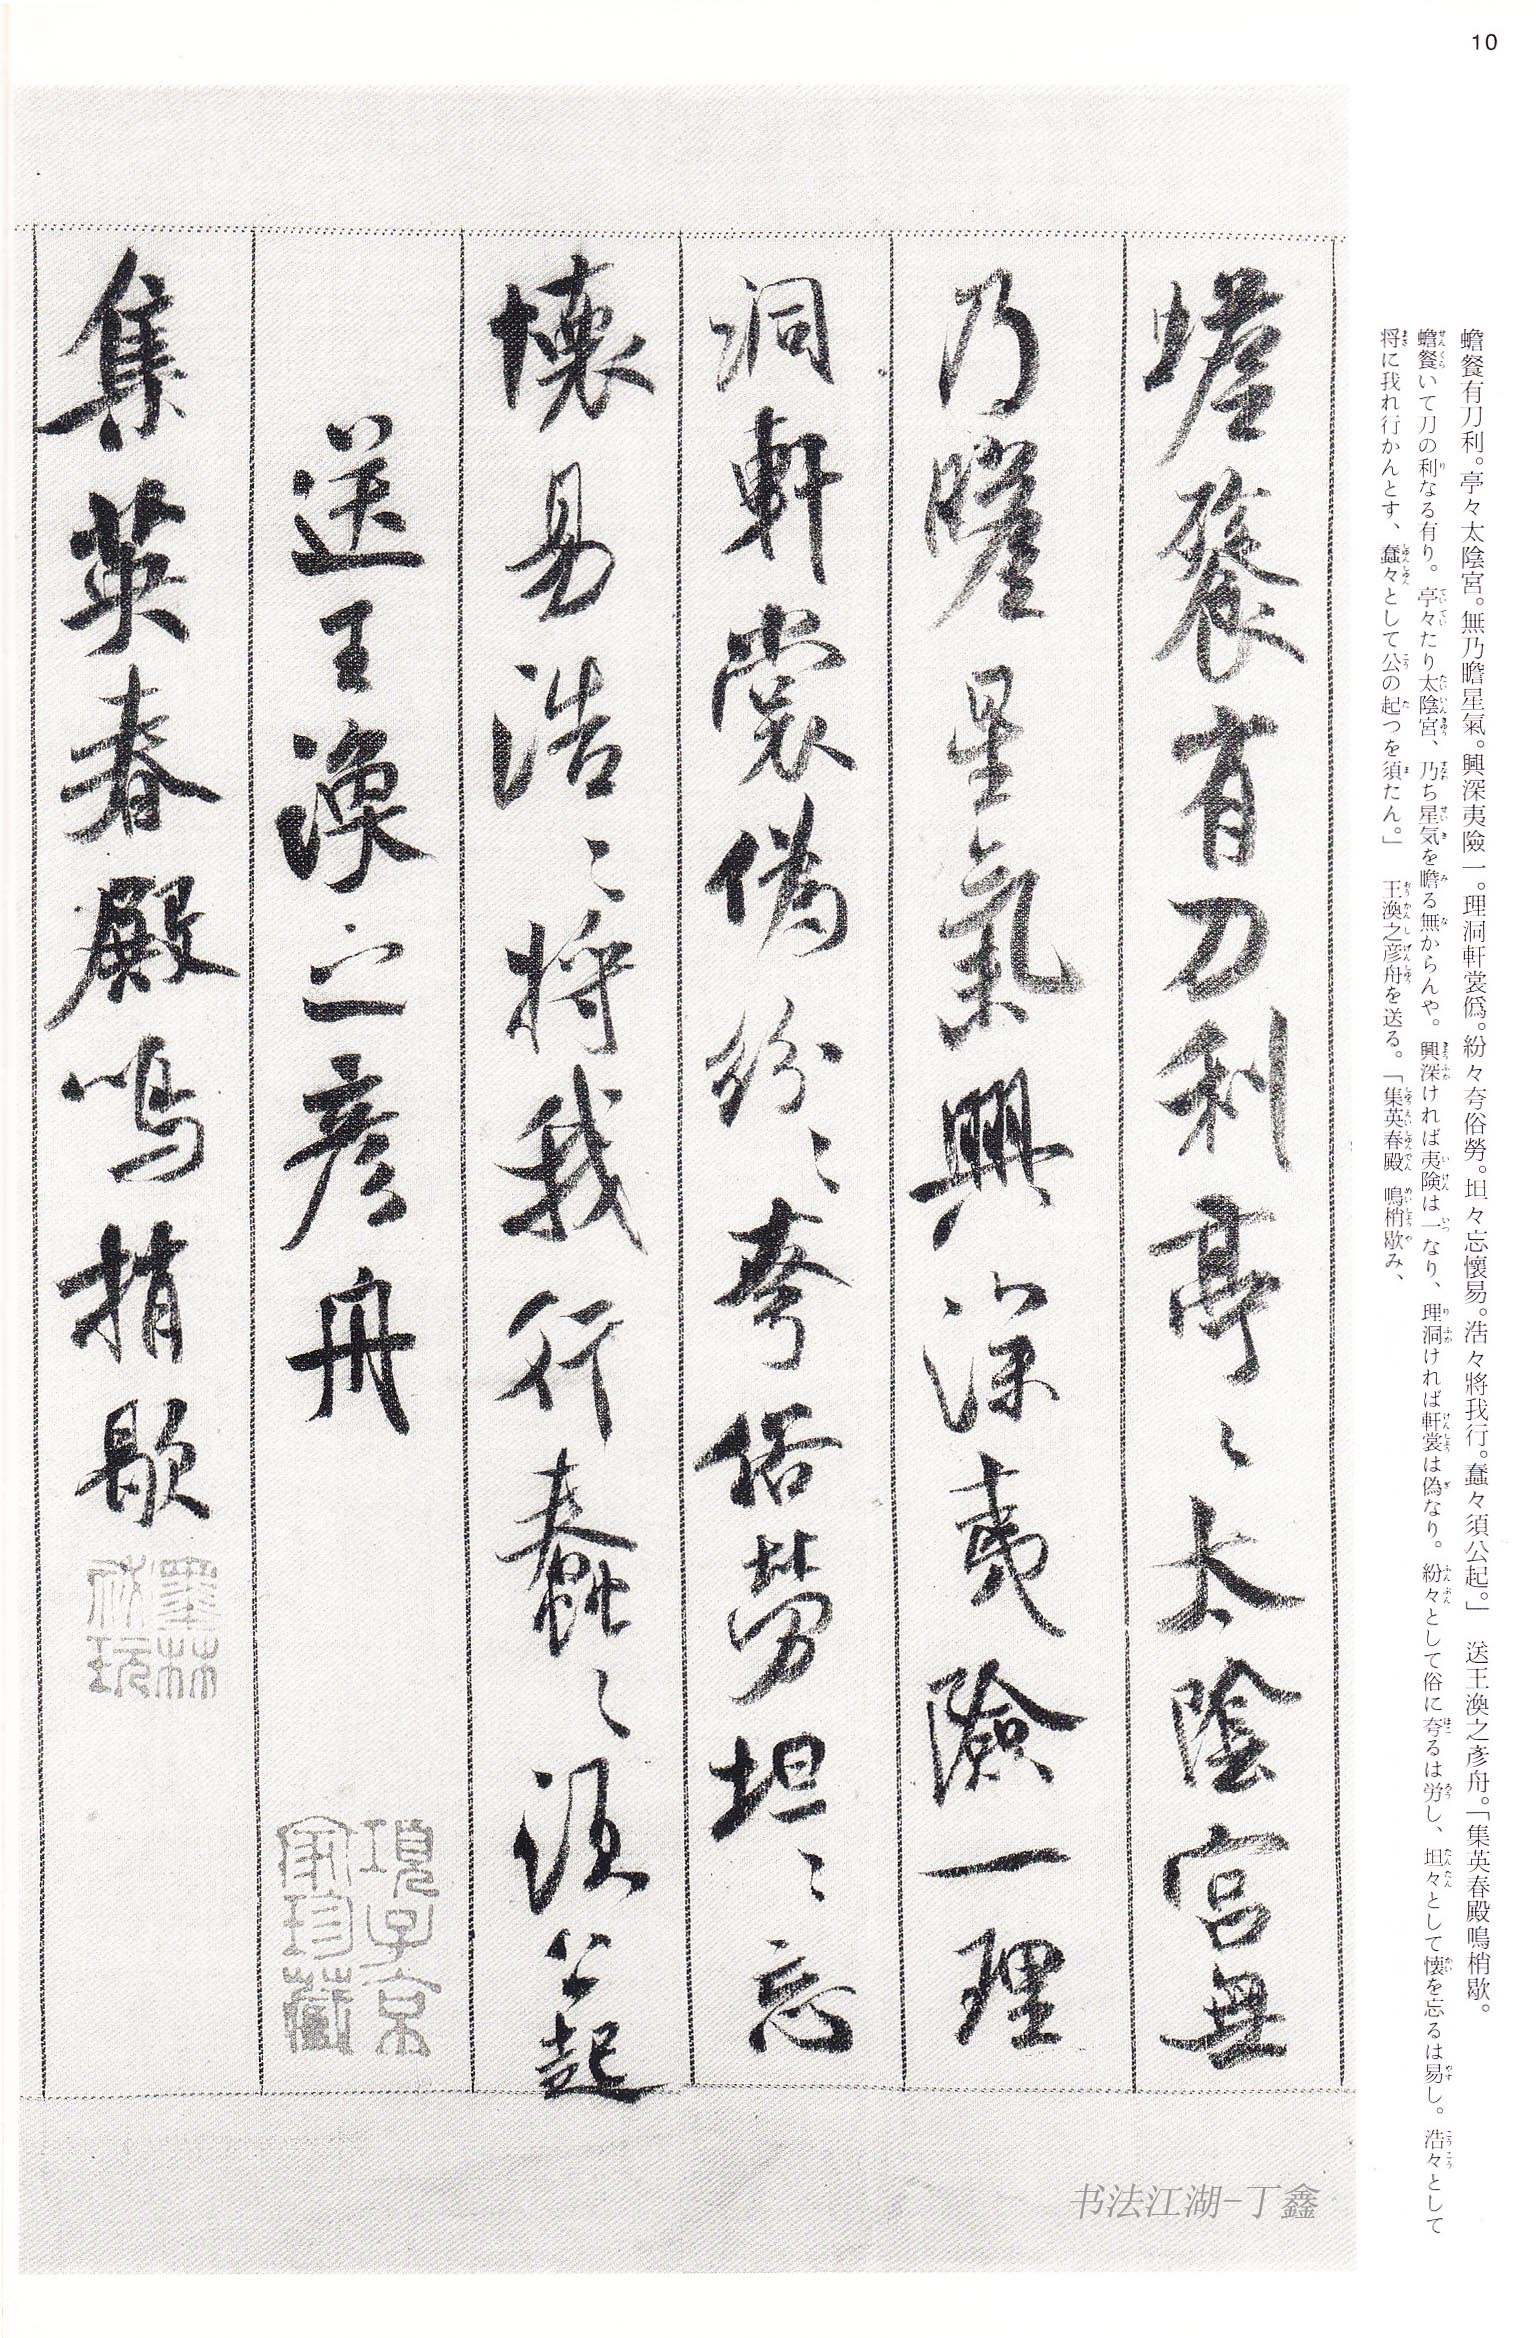 10
蟾餐有刀利。亭々太陰宮。無乃瞻星氣。興深夷險一。理洞軒裳僞。紛々夸俗勞。坦々忘懷易。浩々將我行。蠢々須公起。」　送王渙之彥舟。「集英春殿鳴梢歇。
蟾餐いて刀の利なる有り。亭々たり太陰宮、乃ち星気を瞻る無からんや。興深ければ夷険は一なり、理洞ければ軒裳は偽なり。紛々として俗に夸るは労し、坦々として懐を忘るは易し。浩々として
将に我れ行かんとす、蠢々として公の起つを須たん。」　王渙之彦舟を送る。「集英春殿　鳴梢歇み、
蟾餐有刀利亭〻太陰宮無
乃瞻星氣興深夷險一理
洞軒裳偽紛〻夸俗勞坦〻忘
懷易浩〻將我行蠢〻須公起
送王渙之彦舟
集英春殿鳴捎歇
項子京家珍藏
墨林祕玩
书法江湖-丁鑫